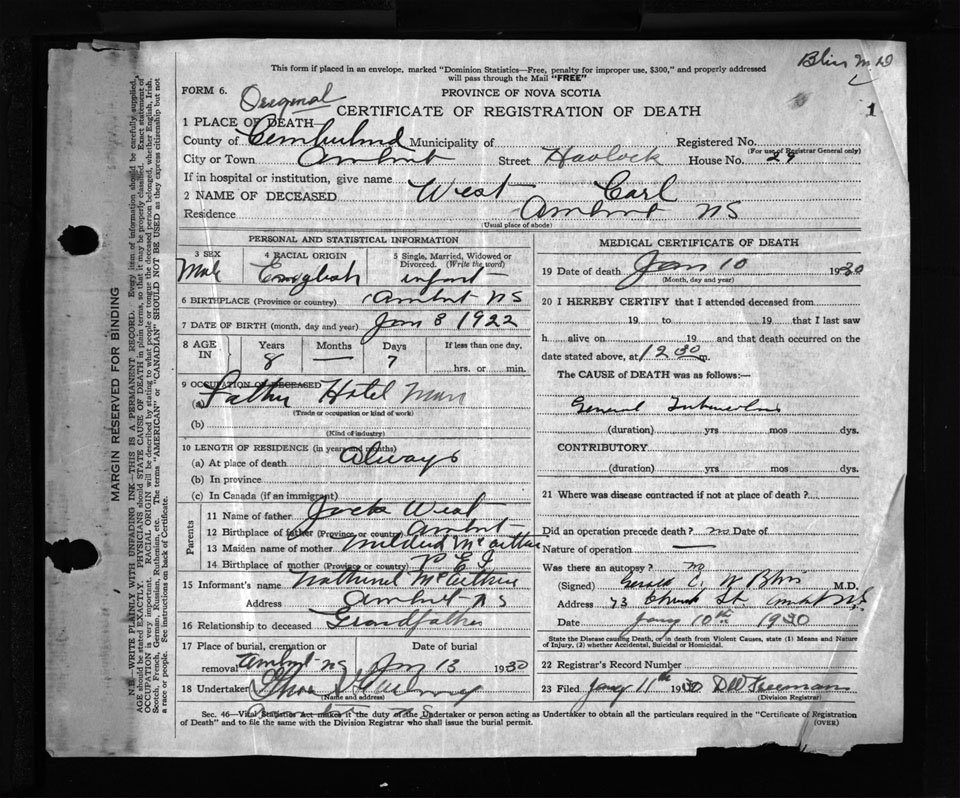 Bliss M D
This form if placed in an envelope, marked "Dominion Statistics—Free, penalty for improper use, $300," and properly addressed
will pass through the Mail "FREE"
FORM 6.
Original
PROVINCE OF NOVA SCOTIA
CERTIFICATE OF REGISTRATION OF DEATH
1
1 PLACE OF DEATH—
County of Cumberland Municipality of Registered No.
(For use of Registrar General only)
City or Town Amherst Street Havlock House No. 29
If in hospital or institution, give name
2 NAME OF DECEASED West Carl
Residence Amherst NS
(Usual place of abode)
PERSONAL AND STATISTICAL INFORMATION
3 SEX
Male
4 RACIAL ORIGIN
English
5 Single, Married, Widowed or
Divorced. (Write the word)
infant
6 BIRTHPLACE (Province or country) Amherst NS
7 DATE OF BIRTH (month, day and year) Jan 8 1922
8 AGE
IN
Years
8
Months
—
Days
7
If less than one day,
hrs. or min.
9 OCCUPATION OF DECEASED
(a) Father Hotel Man
(Trade or occupation or kind of work)
(b)
(Kind of industry)
10 LENGTH OF RESIDENCE (in years and months)
(a) At place of death Always
(b) In province
(c) In Canada (if an immigrant)
Parents
11 Name of father Jack West
12 Birthplace of father (Province or country) Amherst
13 Maiden name of mother Mildred McArthur
14 Birthplace of mother (Province or country) P E I
15 Informant's name McArthur
Address Amherst NS
16 Relationship to deceased Grandfather
17 Place of burial, cremation or
removal Amherst NS
Date of burial
Jan 13 1930
18 Undertaker
(Name and address)
MEDICAL CERTIFICATE OF DEATH
19 Date of death Jan 10 1930
(Month, day and year)
20 I HEREBY CERTIFY that I attended deceased from
19 to 19 that I last saw
h alive on 19 and that death occurred on the
date stated above, at 12 30 m.
The CAUSE of DEATH was as follows:—
General Tuberculosis
(duration) yrs mos dys.
CONTRIBUTORY
(duration) yrs mos dys.
21 Where was disease contracted if not at place of death?
Did an operation precede death? no Date of
Nature of operation —
Was there an autopsy? no
(Signed) Gerald C. W Bliss M.D.
Address 43 Church St Amherst N.S.
Date Jany 10th 1930
State the Disease causing Death, or in death from Violent Causes, state (1) Means and Nature
of Injury, (2) whether Accidental, Suicidal or Homicidal.
22 Registrar's Record Number
23 Filed Jany 11th 1930 Freeman
(Division Registrar)
Sec. 46—Vital Statistics Act makes it the duty of the Undertaker or person acting as Undertaker to obtain all the particulars required in the "Certificate of Registration
of Death" and to file the same with the Division Registrar who shall issue the burial permit.
(OVER)
MARGIN RESERVED FOR BINDING
N.B.—WRITE PLAINLY WITH UNFADING INK—THIS IS A PERMANENT RECORD. Every item of information should be carefully supplied.
AGE should be stated EXACTLY. PHYSICIANS should STATE CAUSE OF DEATH in plain terms, so that it may be properly classified. Exact statement of
OCCUPATION is very important. RACIAL ORIGIN will be described by stating to what people or tongue the deceased person belonged, whether English, Irish,
Scotch, French, German, Russian, Ruthenian, etc. The terms "AMERICAN" or "CANADIAN" SHOULD NOT BE USED as they express citizenship but not
a race or people. See instructions on back of Certificate.